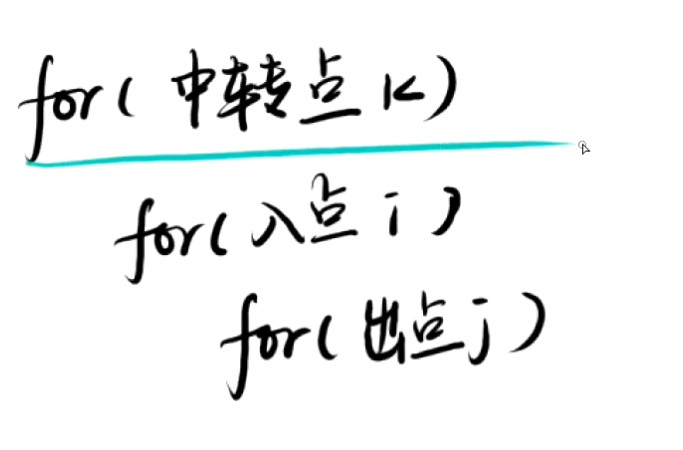 for(中转点k)
for(入点i)
for(出点j)